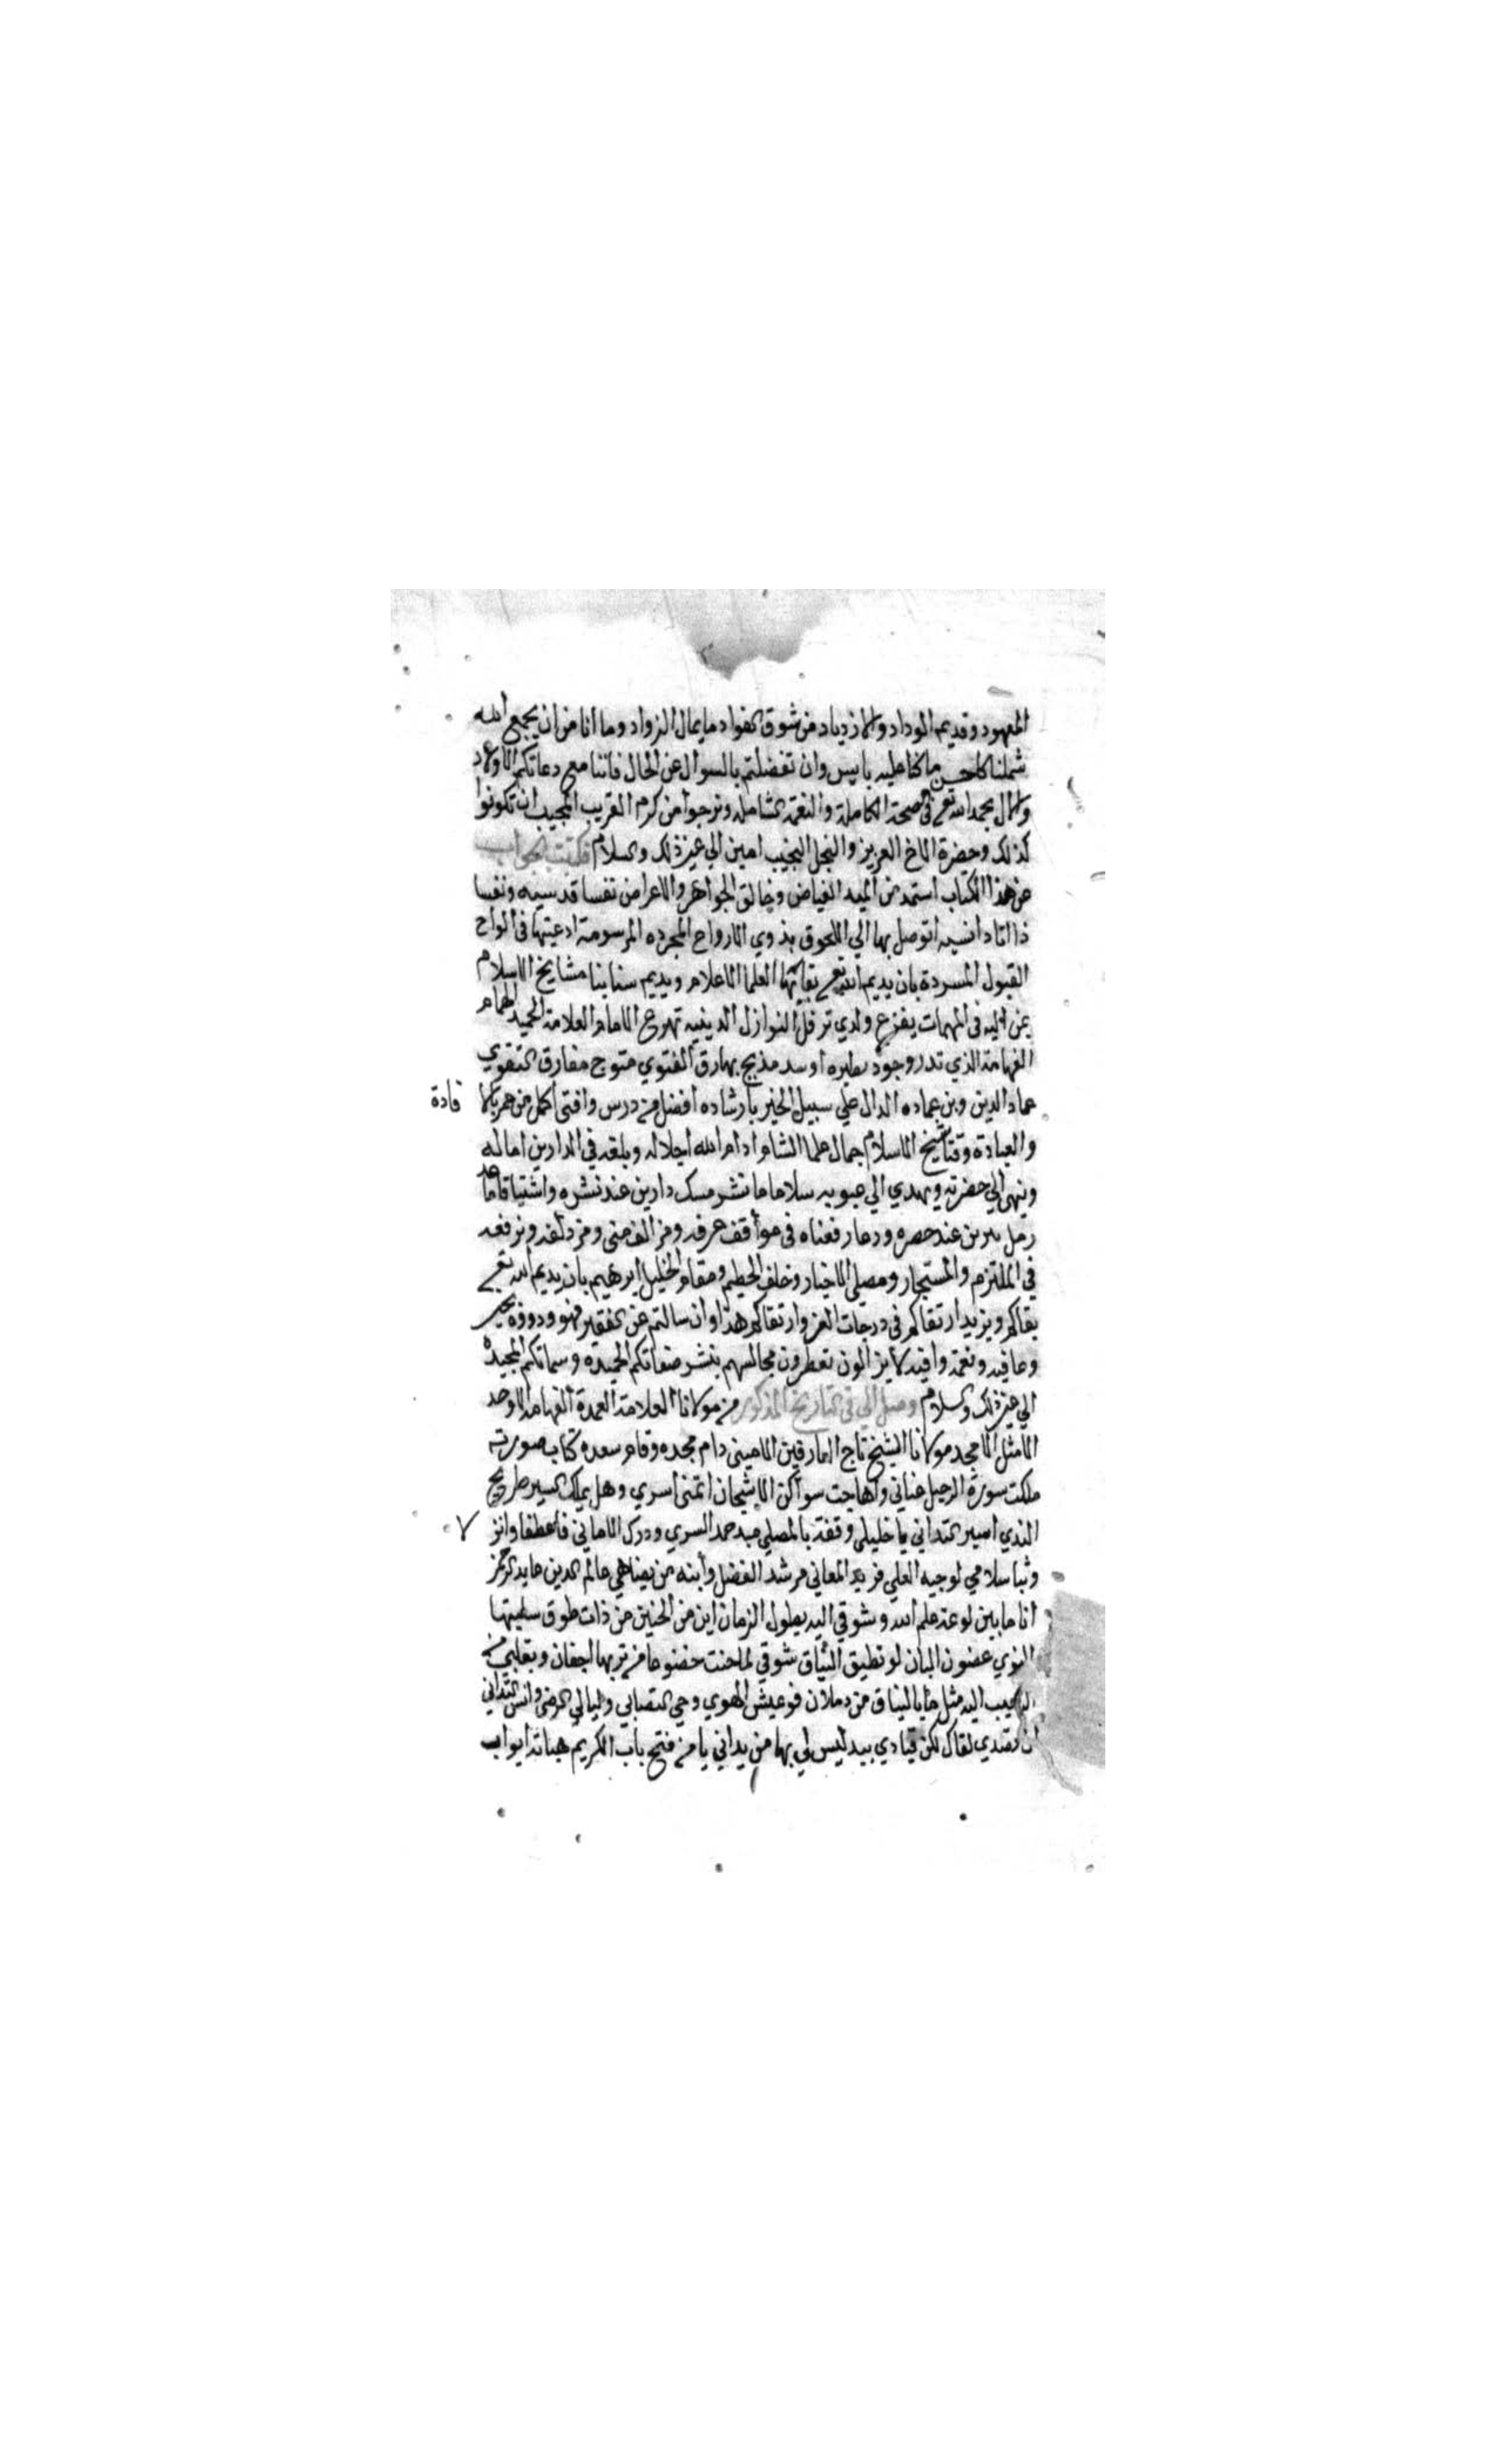 المعهود وقديم الوداد والازدياد من شوق الفواد ما يمال المزواد وما انا من ان يجمع الله
شملنا كاحسن ما كنا عليه بايس وان تفضلتم بالسوال عن الحال فاننا مع دعاتكم الاولاد
والال بحمد الله تعالى في الصحة الكاملة والنعمة الشاملة ونرجوا من كرم القريب المجيب ان تكونوا
كذلك وحضرة الاخ العزيز والنجل النجيب امين الي غير ذلك والسلام فكتبت الجواب
عن هذا الكتاب استمد من المبدا الفياض وخالق الجواهر والاعراض نفسا قدسيه ونفسا
ذا اتاد انسيه اتوصل بها الي اللحوق بذوي الارواح المجرده المرسومة ادعيتها في الواح
القبول المسردة بان يديم الله تعالى بقائها العلما الاعلام ويديم سنا بنا مشايخ الاسلام
عن اليه في المهمات يفزع ولدي ترفل النوازل الدينيه تهرع الامام العلامة الحميد الهمام
الفهامة الذي تدر وجود نظيره اوسد مذبج بهارق الفتوي متوج مفارق التقوي
عماد الدين وبن عماده الدال علي سبيل الخير بارشاده افضل من درس وافتى اكمل من عمر بالا
فادة
والعبادة وقتا شيخ الاسلام جمال علما الشام ادام الله اجلاله وبلغه في الدارين اماله
وينهي الي حضرته ويهدي الي عبوبه سلاما ما نشر مسك دارين عند نشره واشتياقا ما عد
رمل يبرين عند حصره ودعا رفعناه في مواقف عرفه ومزالف منى ومزدلفه ونرفعه
في الملتزم والمستجار ومصلي الاخيار وخلف الحطيم ومقام الخليل ابرهيم بان يديم الله تعالى
بقاكم ويزيد ارتقاكم في درجات العز وارتقاكم هذا وان سالتم عن الفقير فهو وذووه بخير
وعافيه ونعمة وافيه لا يزالون تعطرون مجالسهم بنشر صفاتكم الحميده وسماتكم المجيده
الي غير ذلك والسلام وصل الي في التاريخ المذكور من مولانا العلامة العمدة الفهامة الاوحد
الامثل الامجد مولانا الشيخ تاج العارفين الاميني دام مجده وقام سعده كتاب صورته
ملكت سورة الرحيل عناني واهاجت سواكن الاشجان اتمنى اسري وهل يملك السير طريح
الندي اسير التداني يا خليلي وقفة بالمصلي عبد حمد السري ودرك الاماني فاعطفا وانز
لا
وثبا سلامي لوجيه العلي فريد المعاني مرشد الفضل وابنه من يضاهي عالم الدين عابد الرحمن
انا ما بين لوعة علم الله وشوقي اليه بطول الزمان اين من الحنين من ذات طوق سلبتها
النوي غصون البان لو تطيق النياق شوقي لما حنت خضوعا من تربها اجفان وبقلبي من
الوجيب اليه مثل ما بالنياق من دملان فوعيش الهوي وحي التصابي وليالي الرضى وانس التداني
ان قصدي لقاك لكن قيادي بيد ليس لي بها من يداني يا من فتح باب الكريم هباته ابواب